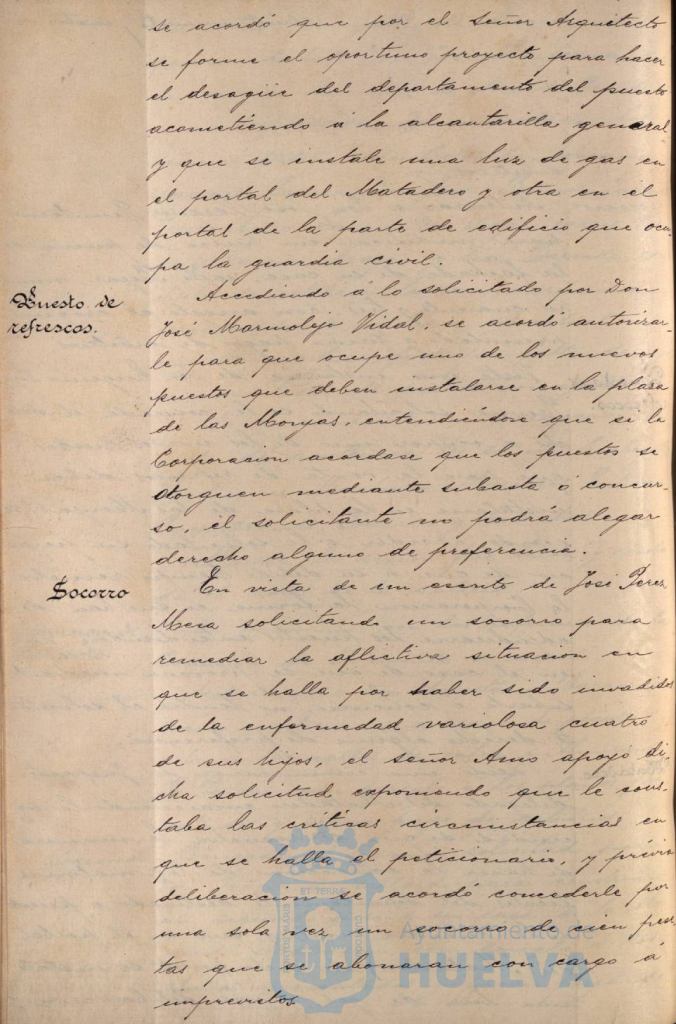 se acordó que por el señor Arquitecto
se forme el oportuno proyecto para hacer
el desagüe del departamento del puesto
acometiendo á la alcantarilla general
y que se instale una luz de gas en
el portal del Matadero y otra en el
portal de la parte de edificio que ocu-
pa la guardia civil.
Puesto de
refrescos.
Accediendo á lo solicitado por Don
José Marmolejo Vidal, se acordó autorizar-
le para que ocupe uno de los nuevos
puestos que deben instalarse en la plaza
de las Monjas, entendiéndose que si la
Corporacion acordase que los puestos se
otorguen mediante subasta ó concur-
so, el solicitante no podrá alegar
derecho alguno de preferencia.
Socorro
En vista de un escrito de José Perez
Mesa solicitando un socorro para
remediar la aflictiva situacion en
que se halla por haber sido invadidos
de la enfermedad variolosa cuatro
de sus hijos, el señor Amo apoyó di-
cha solicitud exponiendo que le cons-
taba las críticas circunstancias en
que se halla el peticionario, y prévia
deliberacion se acordó concederle por
una sola vez un socorro de cien pese-
tas que se abonaran con cargo á
imprevistos.
Ayuntamiento de
HUELVA